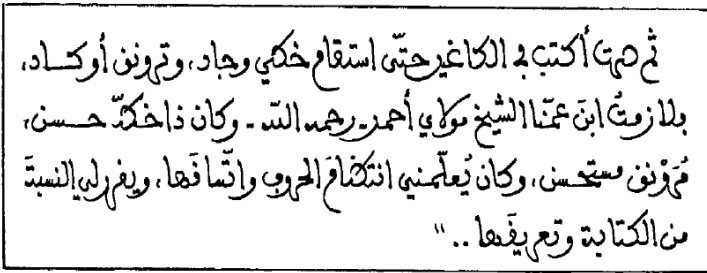 ثم صرت أكتب في الكاغيد حتّى استقام خطي وجاد، وترونق أو كـاد،
بملازمتُ ابنَ عمّنا الشيخ مولاي أحمد ـ رحمه الله ـ وكان ذا خطّ حسن،
مُرَوْنق مستحسن، وكان يُعلّمني انتظامَ الحروف واتّساقَها، ويقرر لي النسبةَ
من الكتابة وتعريفَها .. "